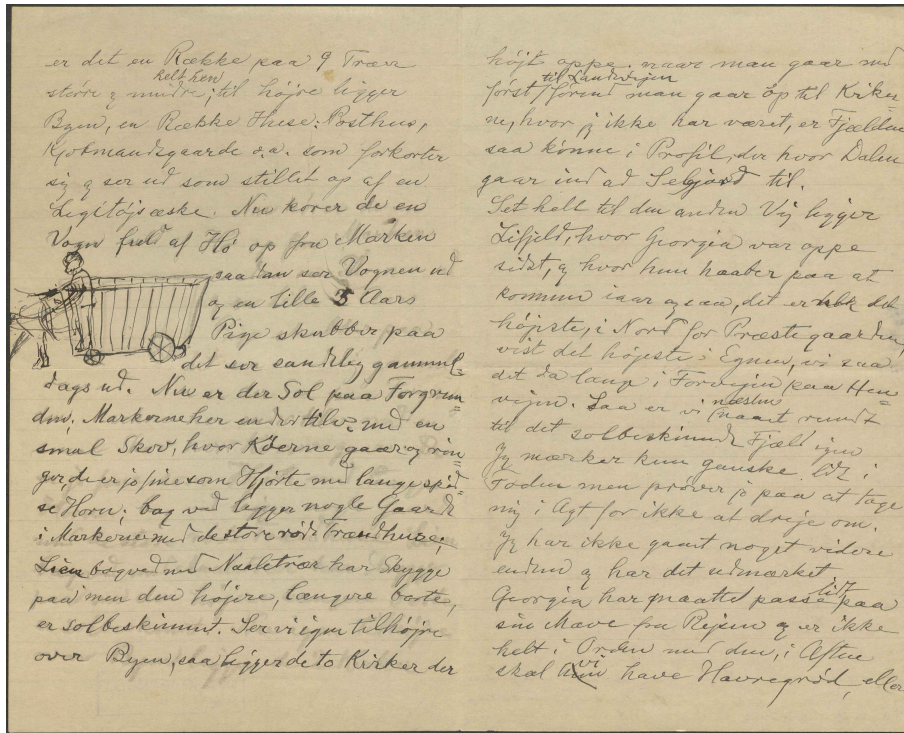 er det en Række paa 9 Træer
helt hen
större og mindre; til højre ligger
Byen, en Række Huse: Posthus,
Kjøbmandsgaarde o.a. som forkorter
sig og ser ud som stillet op af en
Legetöjsæske. Nu kører de en
Vogn fuld af Hø op fra Marken
saadan ser Vognen ud
og en lille 5 Aars
Pige skubber paa
det ser sandelig gammel=
dags ud. Nu er der Sol paa Forgrun=
den; Markerne her ender med en
smal Skov, hvor Køerne gaar og rin=
ger, de er jo fine som Hjorte med lange spid=
se Horn; bag ved ligger nogle Gaarde
i Markerne med de store røde Træudhuse;
Lien bagved med Naaletræer har Skygge
paa men den højre, længere borte,
er solbeskinnet. Ser vi igen til højre
over Byen, saa ligger de to Kirker der
højt oppe. naar man gaar ned
til Landevejen
først / førend man gaar op til Kirker=
ne, hvor jeg ikke har været, er Fjældene
saa kønne i Profil, der hvor Dalen
gaar ind ad Seljord til.
Set helt til den anden Vej ligger
Lifjeld, hvor Georgia var oppe
sidst, og hvor hun haaber paa at
komme iaar ogsaa, det er det
højeste, i Nord for Præstegaarden,
vist det højeste i Egnen, vi saa
det da længe i Forvejen paa Hen=
vejen. Saa er vi naaet rundt
næsten
til det solbeskinnede Fjæld igen
Jeg mærker kun ganske lidt i
Foden men prøver jo paa at tage
mig i Agt for ikke at dreje om.
Jeg har ikke gaaet noget videre
endnu og har det udmærket
Georgia har maattet passe paa
lidt
sin Mave fra Rejsen og er ikke
helt i Orden med den, i Aften
skal vi have Havregrød, eller